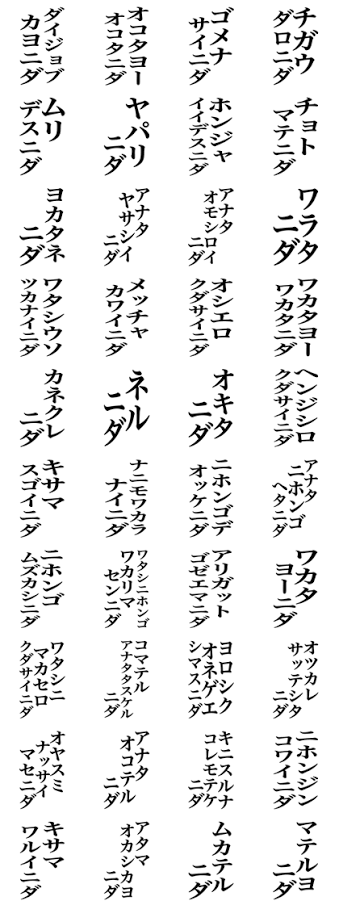 チガウ
ダロニダ
ゴメナ
サイニダ
オコタヨー
オコタニダ
ダイジョブ
カヨニダ
チョト
マテニダ
ホンジャ
イイデスニダ
ヤパリ
ニダ
ムリ
デスニダ
ワラタ
ニダ
アナタ
オモシロイ
ニダ
アナタ
ヤサシイ
ニダ
ヨカタネ
ニダ
ワカタヨー
ワカタニダ
オシエロ
クダサイニダ
メッチャ
カワイニダ
ワタシウソ
ツカナイニダ
ヘンジシロ
クダサイニダ
オキタ
ニダ
ネル
ニダ
カネクレ
ニダ
アナタ
ニホンゴ
ヘタニダ
ニホンゴデ
オッケニダ
ナニモワカラ
ナイニダ
キサマ
スゴイニダ
ワカタ
ヨーニダ
アリガット
ゴゼエマニダ
ワタシニホンゴ
ワカリマ
センニダ
ニホンゴ
ムズカシニダ
オツカレ
サッテシタ
ニダ
ヨロシク
オネゲエ
シマスニダ
コマテル
アナタタスケル
ニダ
ワタシニ
マカセロ
クダサイニダ
ニホンジン
コワイニダ
キニスルナ
コレモテケ
ニダ
アナタ
オコテル
ニダ
オヤスミ
ナッサイ
マセニダ
マテルヨ
ニダ
ムカテル
ニダ
アタマ
オカシカヨ
ニダ
キサマ
ワルイニダ